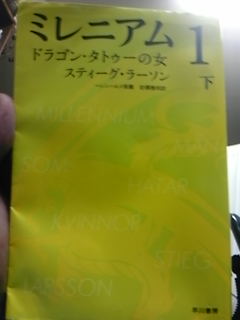 ミレニアム 1
ドラゴン・タトゥーの女 下
スティーグ・ラーソン
MILLENNIUM
MÄN
SOM
HATAR
KVINNOR
STIEG
LARSSON
早川書房